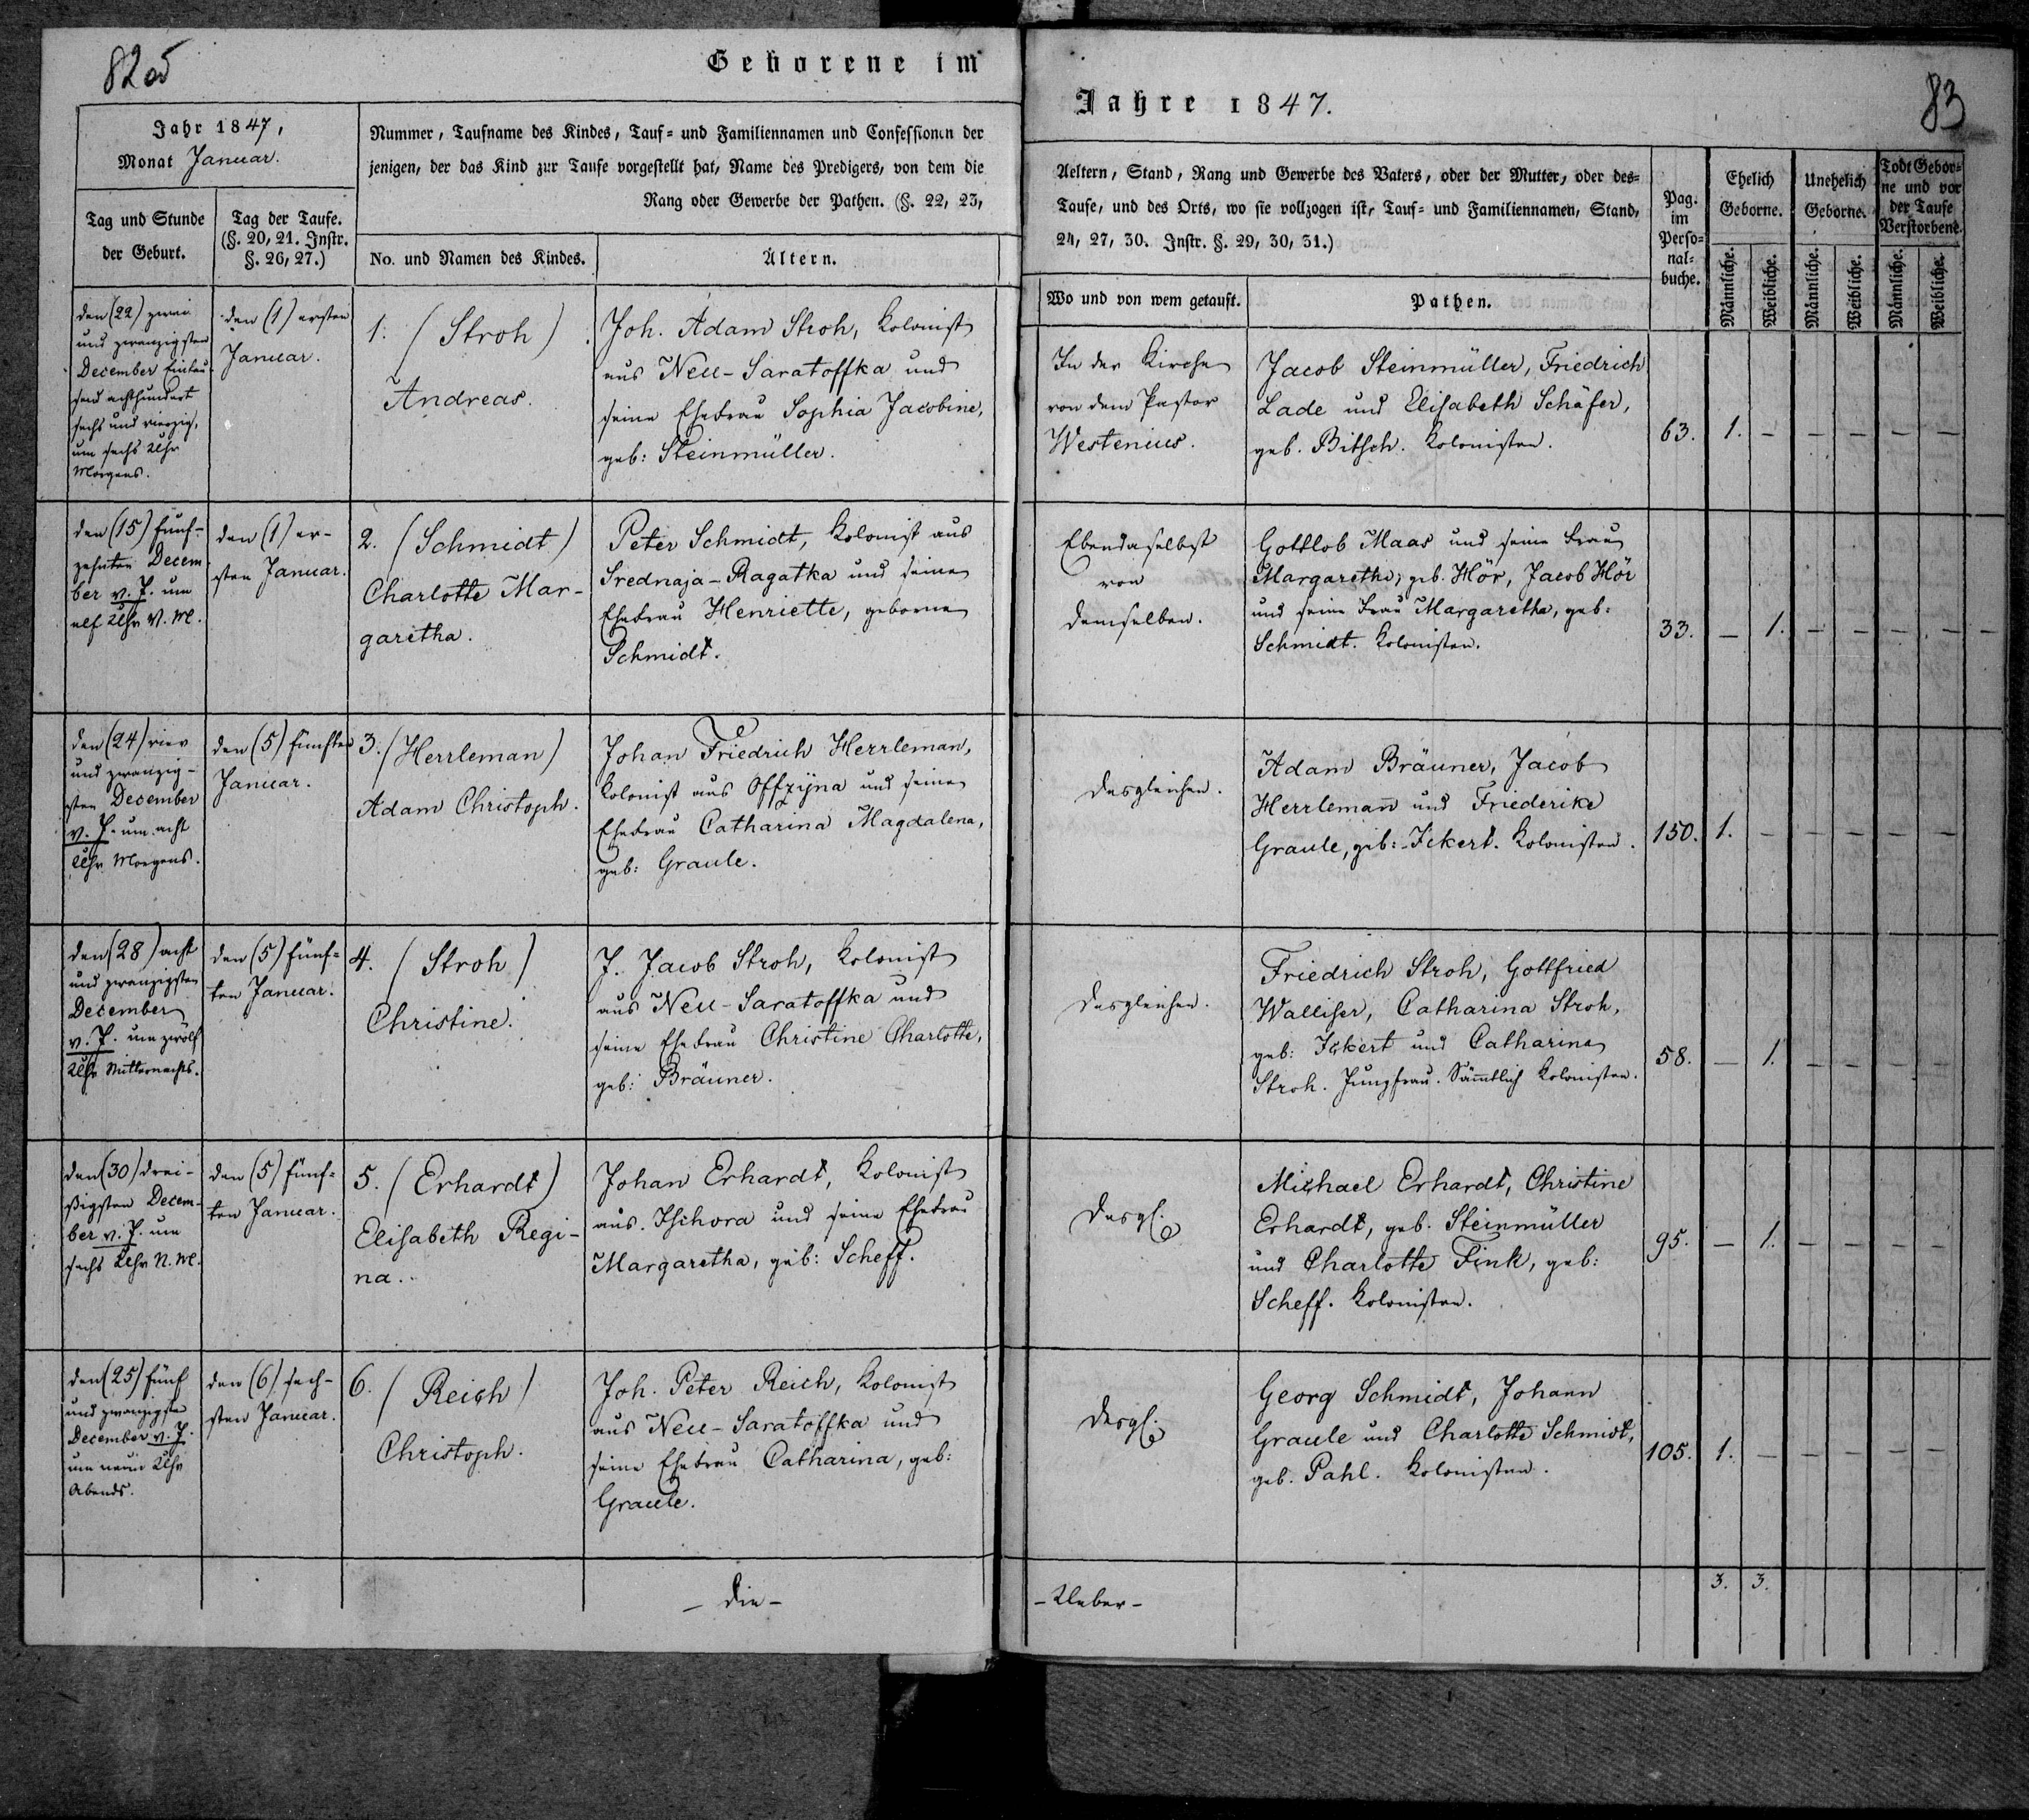 8205
Geborene im
Jahr 1847,
Monat Januar.
Nummer, Taufname des Kindes, Tauf- und Familiennamen und Confessionen der
jenigen, der das Kind zur Taufe vorgestellt hat, Name des Predigers, von dem die
Rang oder Gewerbe der Pathen. (§. 22, 23,
Tag und Stunde
der Geburt.
Tag der Taufe.
(§. 20, 21. Instr.
§. 26, 27.)
No. und Namen des Kindes.
Ältern.
den (22) zwei
und zwanzigsten
December Eintau-
send achthundert
sechs und vierzig,
um sechs Uhr
Morgens.
den (1) ersten
Januar.
1. (Stroh)
Andreas.
Joh. Adam Stroh, Kolonist
aus Neu-Saratoffka und
seine Ehefrau Sophia Jacobine,
geb: Steinmüller.
den (15) fünf-
zehnten Decem
ber v. J. um
elf Uhr V. M.
den (1) er-
sten Januar.
2. (Schmidt)
Charlotte Mar-
garetha.
Peter Schmidt, Kolonist aus
Srednaja-Ragatka und seine
Ehefrau Henriette, geborne
Schmidt.
den (24) vier
und zwanzig-
sten December
v. J. um acht
Uhr Morgens.
den (5) fünften
Januar.
3. (Herrleman)
Adam Christoph.
Johan Friedrich Herrleman,
Kolonist aus Offzÿna und seine
Ehefrau Catharina Magdalena,
geb: Graule.
den (28) acht
und zwanzigsten
December
v. J. um zwölf
Uhr Mitternachts.
den (5) fünf-
ten Januar.
4. (Stroh)
Christine.
J. Jacob Stroh, Kolonist
aus Neu-Saratoffka und
seine Ehefrau Christine Charlotte,
geb: Bräuner.
den (30) drei-
ßigsten Decem-
ber v. J. um
sechs Uhr N. M.
den (5) fünf-
ten Januar.
5. (Erhardt)
Elisabeth Regi-
na.
Johan Erhardt, Kolonist
aus Ischora und seine Ehefrau
Margaretha, geb: Scheff.
den (25) fünf
und zwanzigsten
December v. J.
um neun Uhr
Abends.
den (6) sech-
sten Januar.
6. (Reich)
Christoph.
Joh. Peter Reich, Kolonist
aus Neu-Saratoffka und
seine Ehefrau Catharina, geb:
Graule.
- Die -
Jahre 1847.
83
Aeltern, Stand, Rang und Gewerbe des Vaters, oder der Mutter, oder des-
Taufe, und des Orts, wo sie vollzogen ist, Tauf- und Familiennamen, Stand,
24, 27, 30. Instr. §. 29, 30, 31.)
Wo und von wem getauft.
Pathen.
Pag.
im
Perso-
nal-
buche.
Ehelich
Geborne.
Unehelich
Geborne.
Todt Gebor-
ne und vor
der Taufe
Verstorbene.
Männliche.
Weibliche.
Männliche.
Weibliche.
Männliche.
Weibliche.
In der Kirche
von dem Pastor
Westenius.
Jacob Steinmüller, Friedrich
Lade und Elisabeth Schäfer,
geb. Bitsch. Kolonisten.
63. 1. – – – – –
Ebendaselbst
von
demselben.
Gottlob Maas und seine Frau
Margaretha, geb. Hör, Jacob Hör
und seine Frau Margaretha, geb:
Schmidt. Kolonisten.
33. – 1. – – – – –
Desgleichen.
Adam Bräuner, Jacob
Herrleman̄ und Friederike
Graule, geb: Ickert. Kolonisten.
150. 1. – – – – –
Desgleichen.
Friedrich Stroh, Gottfried
Walliser, Catharina Stroh,
geb: Ickert und Catharina
Stroh. Jungfrau. Säm̄tlich Kolonisten.
58. – 1. – – – –
Desgl.
Michael Erhardt, Christine
Erhardt, geb. Steinmüller
und Charlotte Fink, geb:
Scheff. Kolonisten.
95. – 1. – – – –
Desgl.
Georg Schmidt, Johann
Graule und Charlotte Schmidt,
geb. Pahl. Kolonisten.
105. 1. – – – – –
- Ueber -
3. 3.